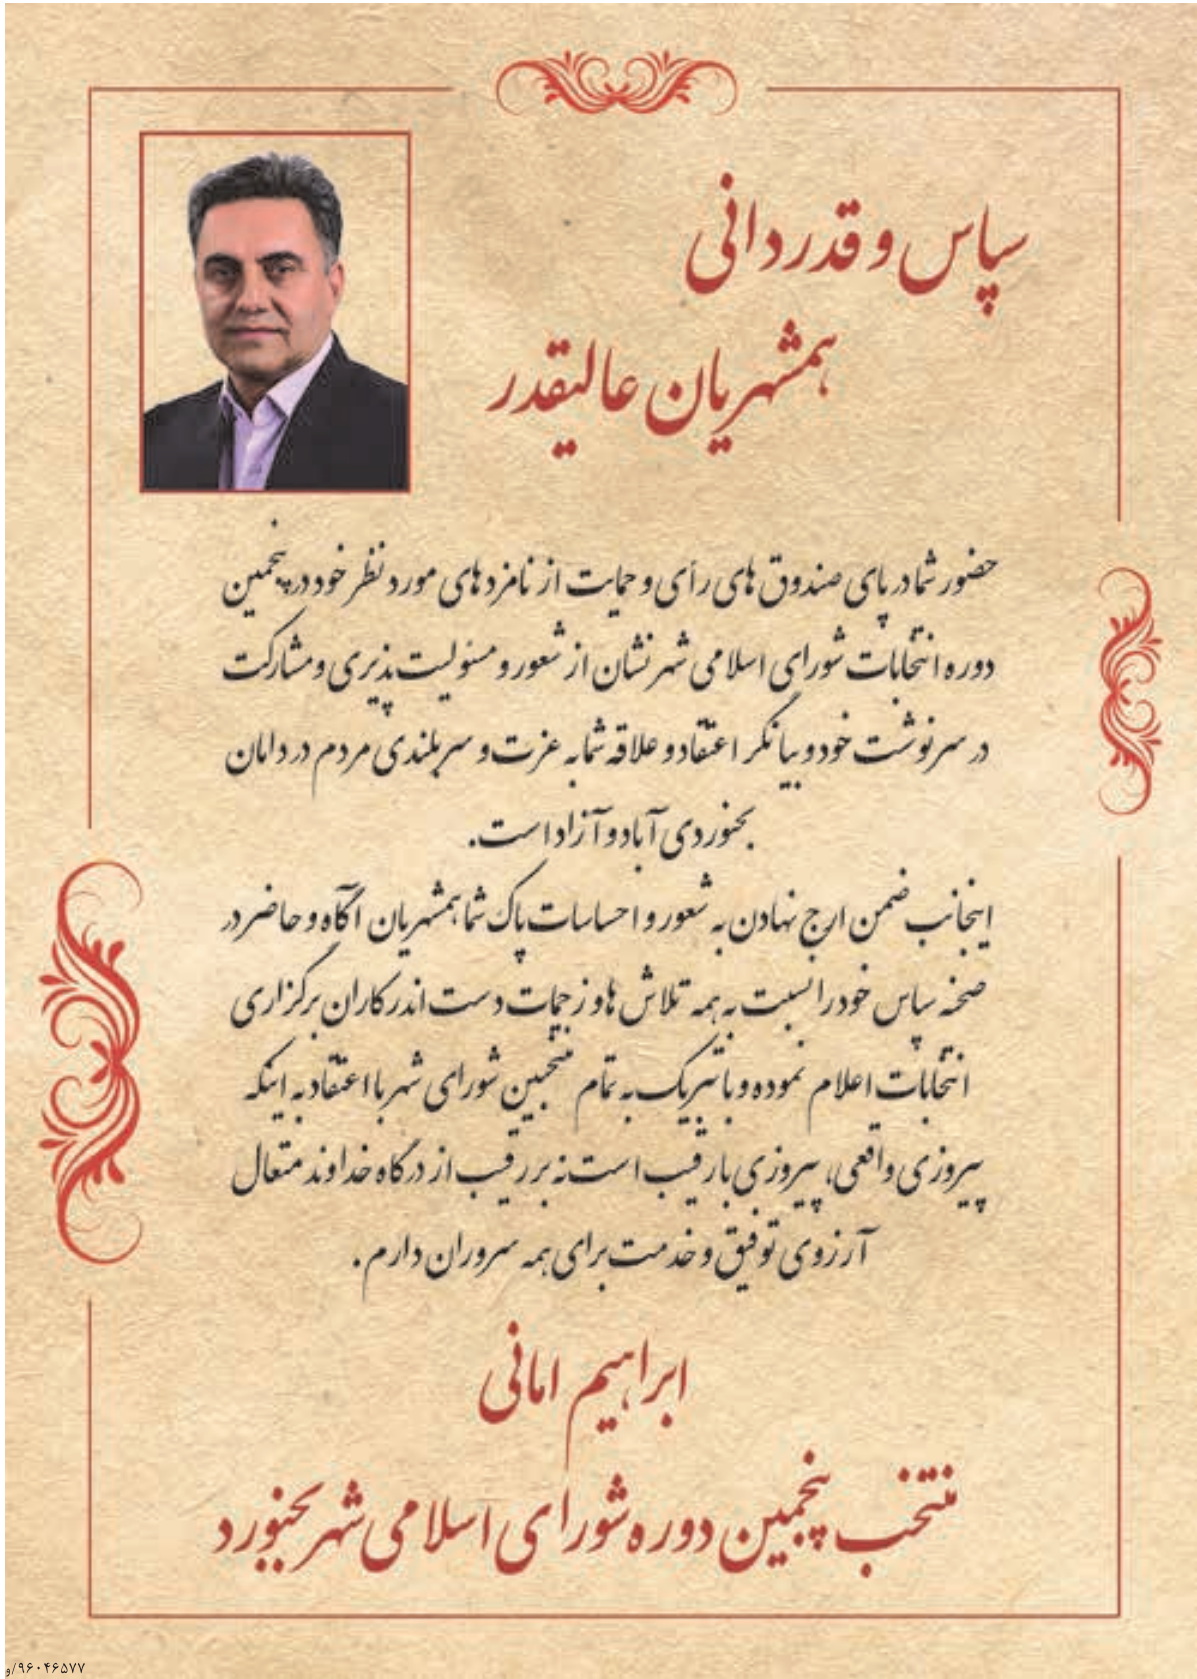 سپاس و قدردانی
همشهریان عالیقدر
حضور شما در پای صندوق های رأی و حمایت از نامزدهای مورد نظر خود در پنجمین
دوره انتخابات شورای اسلامی شهر نشان از شعور و مسئولیت پذیری و مشارکت
در سرنوشت خود و بیانگر اعتقاد و علاقه شما به عزت و سربلندی مردم در دامان
بجنوردی آباد و آزاد است.
اینجانب ضمن ارج نهادن به شعور و احساسات پاک شما همشهریان آگاه و حاضر در
صحنه سپاس خود را نسبت به همه تلاش ها و زحمات دست اندرکاران برگزاری
انتخابات اعلام نموده و با تبریک به تمام منتخبین شورای شهر با اعتقاد به اینکه
پیروزی واقعی، پیروزی با رقیب است نه بر رقیب از درگاه خداوند متعال
آرزوی توفیق و خدمت برای همه سروران دارم.
ابراهیم امانی
منتخب پنجمین دوره شورای اسلامی شهر بجنورد
۹۶۰۴۶۵۷۷/و